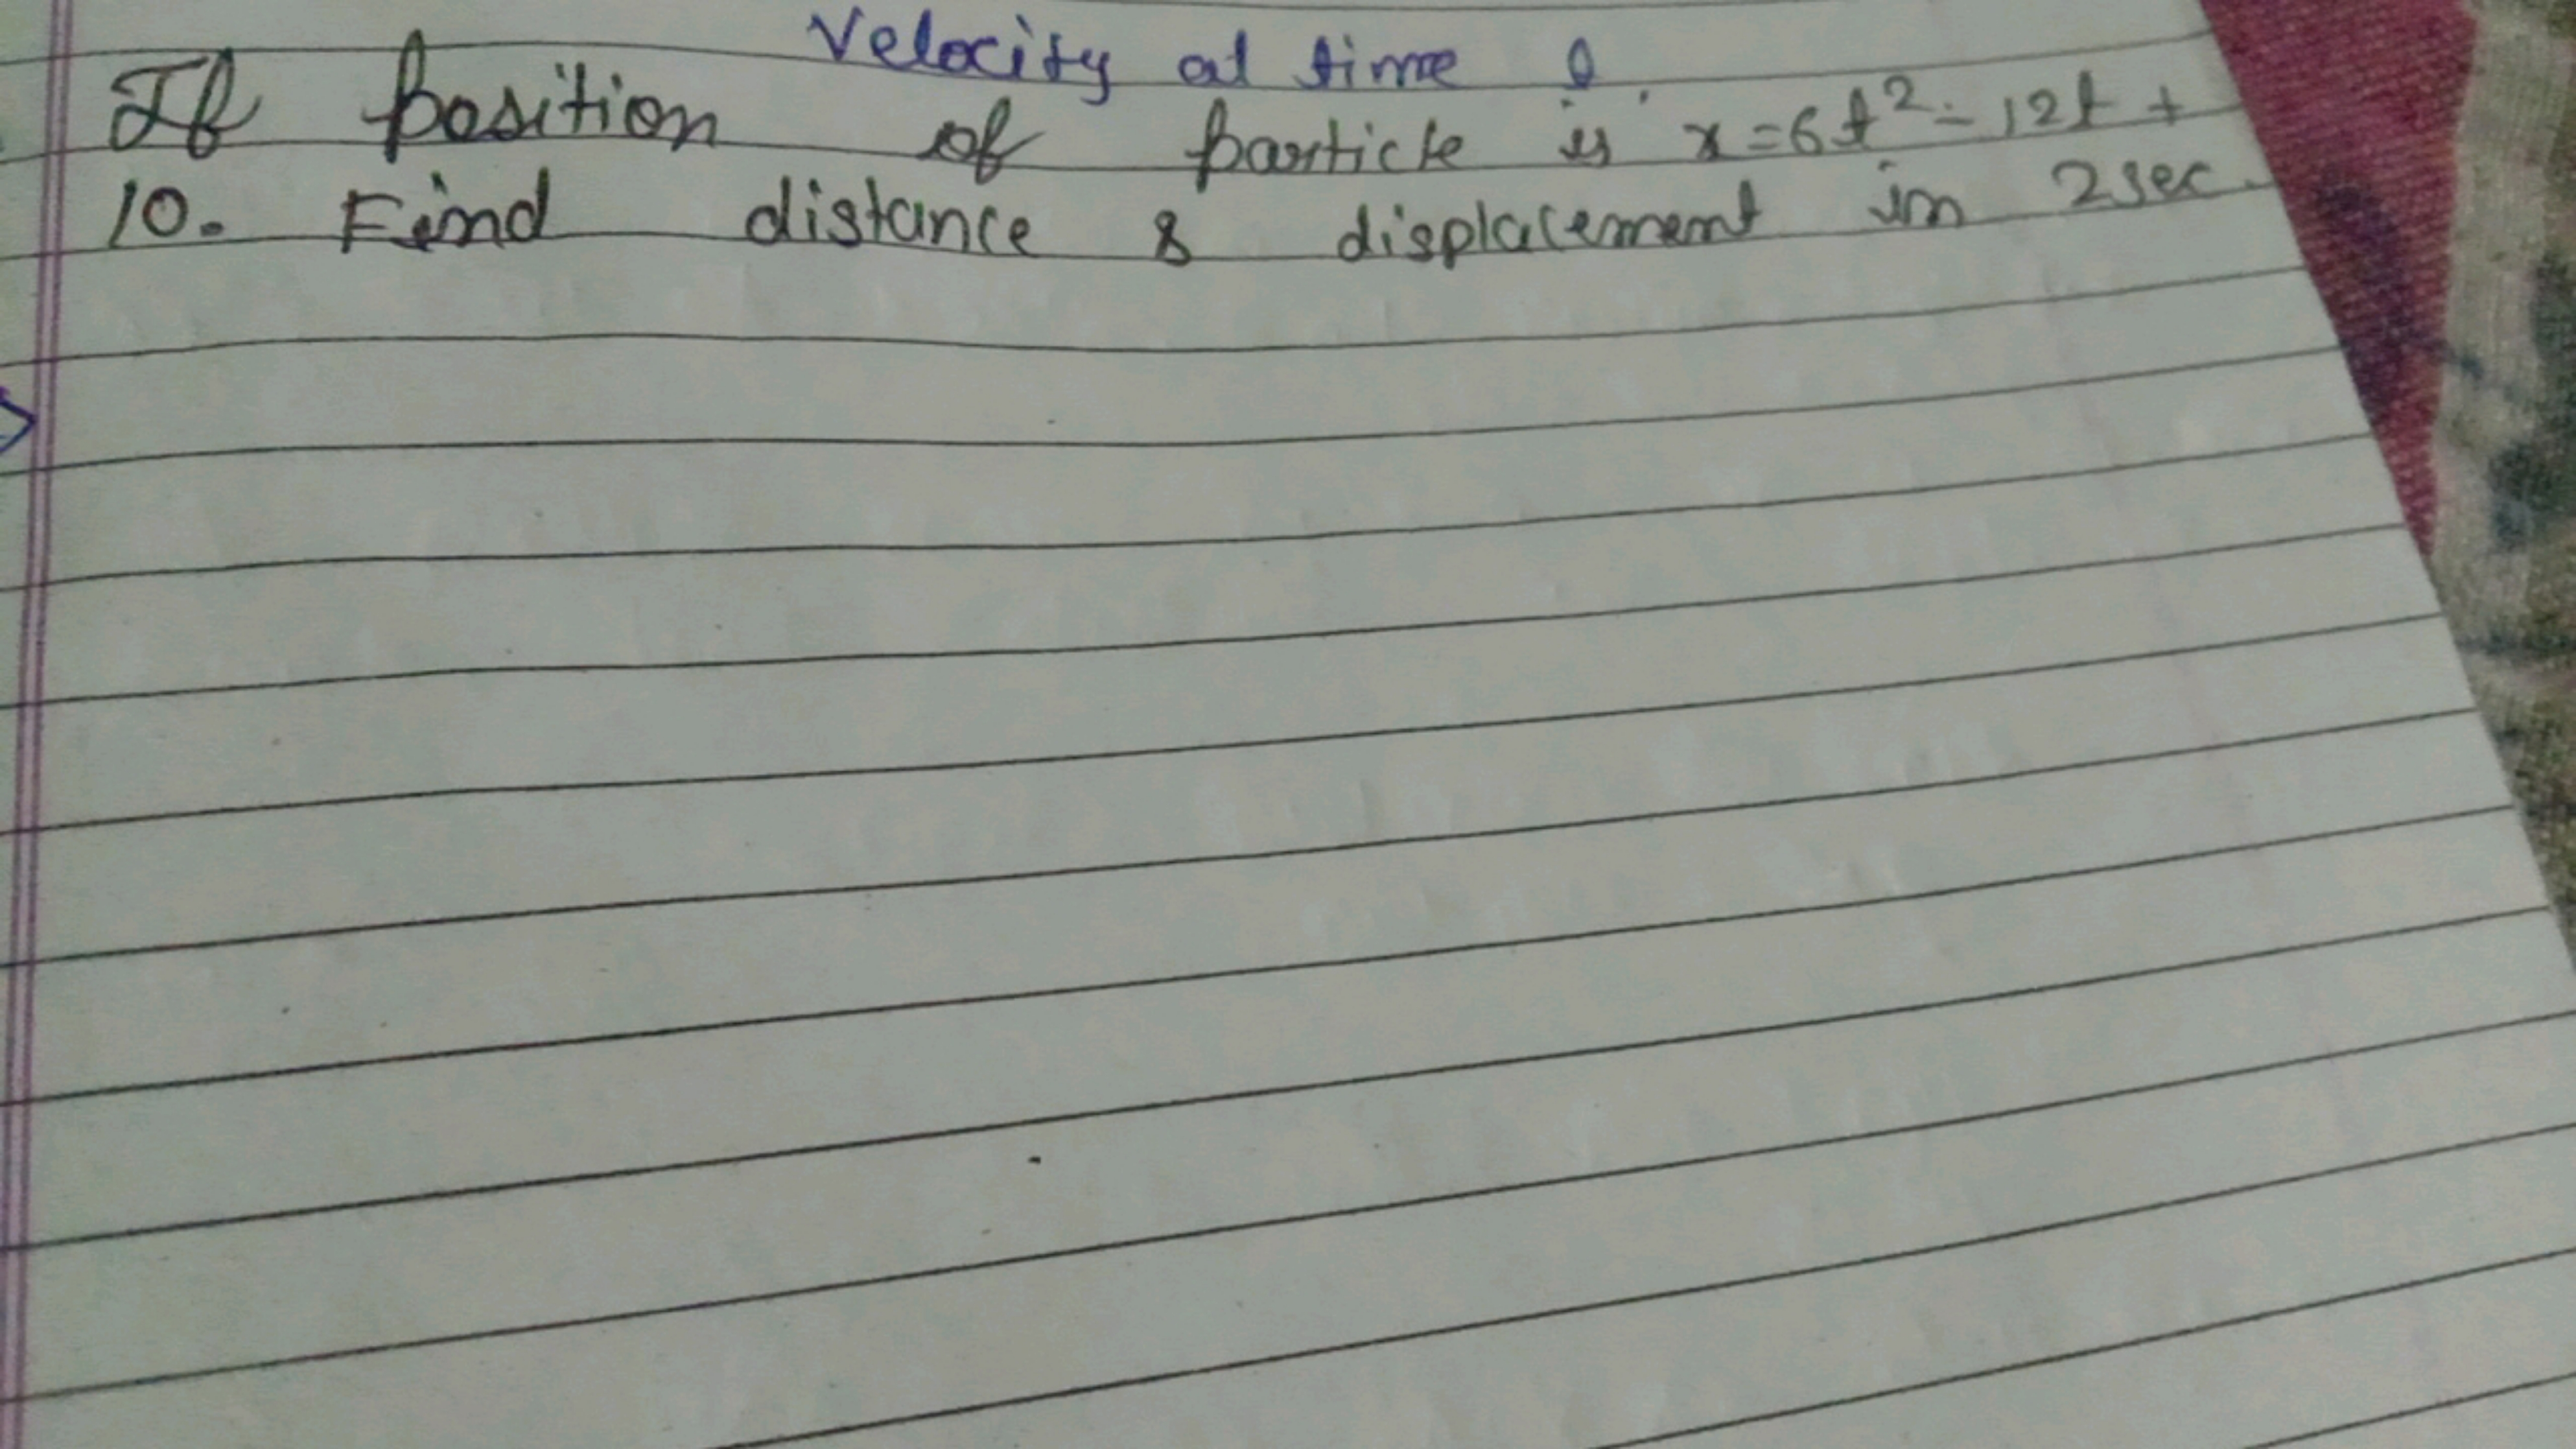 Velocity at time 0
If position of particle is x = 6t² - 12t +
10. Find distance & displacement in 2 sec.